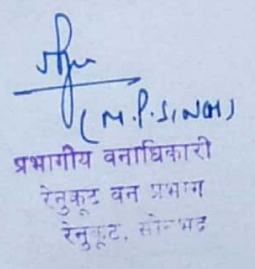 (M.P. SINGH)
प्रभागीय वनाधिकारी
रेनुकूट वन प्रभाग
रेनुकूट, सोनभद्र